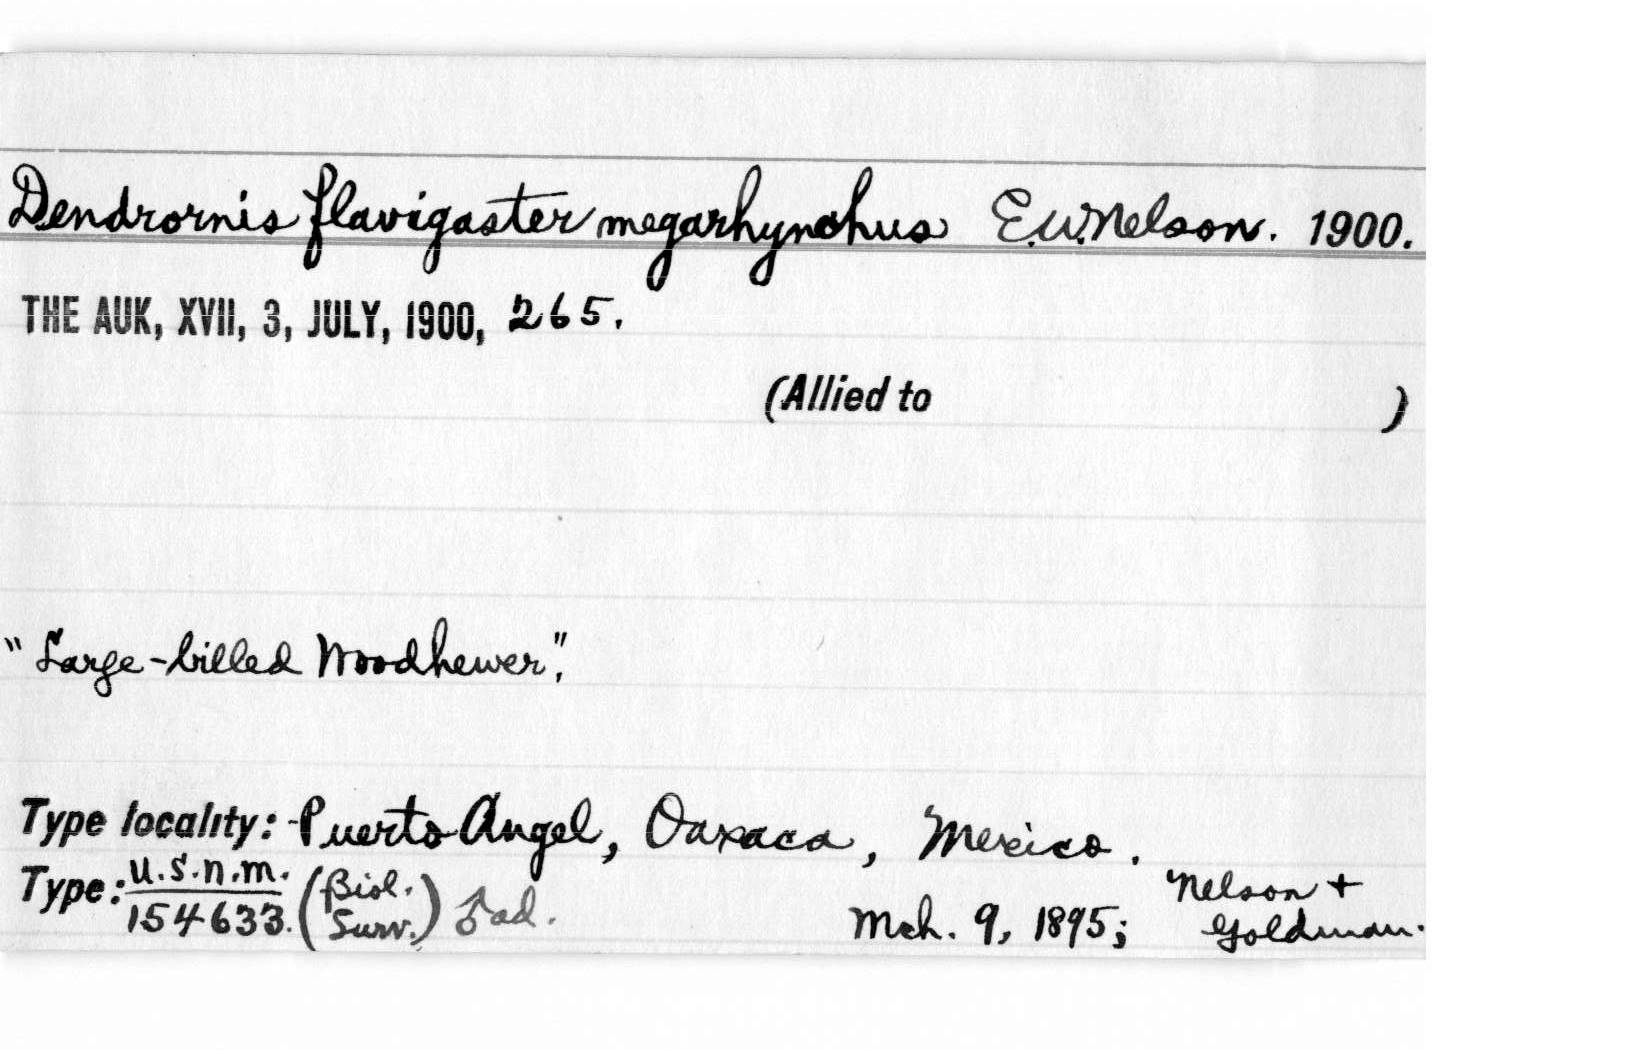 Dendrornis flavigaster megarhynchus E.W.Nelson. 1900.
THE AUK, XVII, 3, JULY, 1900, 265.
(Allied to )
"Large-billed Woodhewer".
Type locality: Puerto Angel, Oaxaca, Mexico.
Type: U.S.N.M. 154633. (Biol. Surv.) ♂ ad. Mch. 9, 1895; Nelson + Goldman.